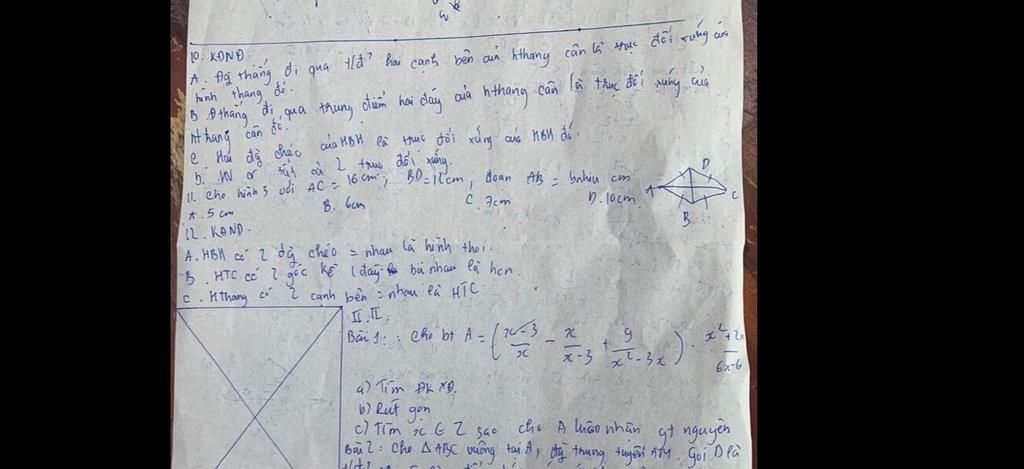 10. KĐND.
A. Đg thẳng đi qua tđ² hai cạnh bên của hthang cân là trục đối xứng của
hình thang đó.
B. Đthẳng đi qua trung điểm hai đáy của hthang cân là trục đối xứng của
hthang cân đó.
C. Hai đg chéo của HBH là trục đối xứng của HBH đó.
có 2 trục đối xứng.
11. Cho hình 3 với AC = 16cm, BD = 12cm, đoạn AB = bnhiu cm
A. 5cm B. 6cm C. 7cm D. 10cm
A D C B
12. KĐND.
A. HBH có 2 đg chéo = nhau là hình thoi.
B. HTC có 2 góc kề 1 đáy bù nhau là hcn
C. Hthang có 2 cạnh bên = nhau là HTC
II. TL
Bài 1: Cho bt A = (x-3/x - x/x-3 + 9/x²-3x) . x²+2x/6x-6
a) Tìm ĐKXĐ.
b) Rút gọn
c) Tìm x ∈ Z sao cho A luôn nhận gt nguyên
Bài 2: Cho △ABC vuông tại A, đg trung tuyến AM. Gọi D là